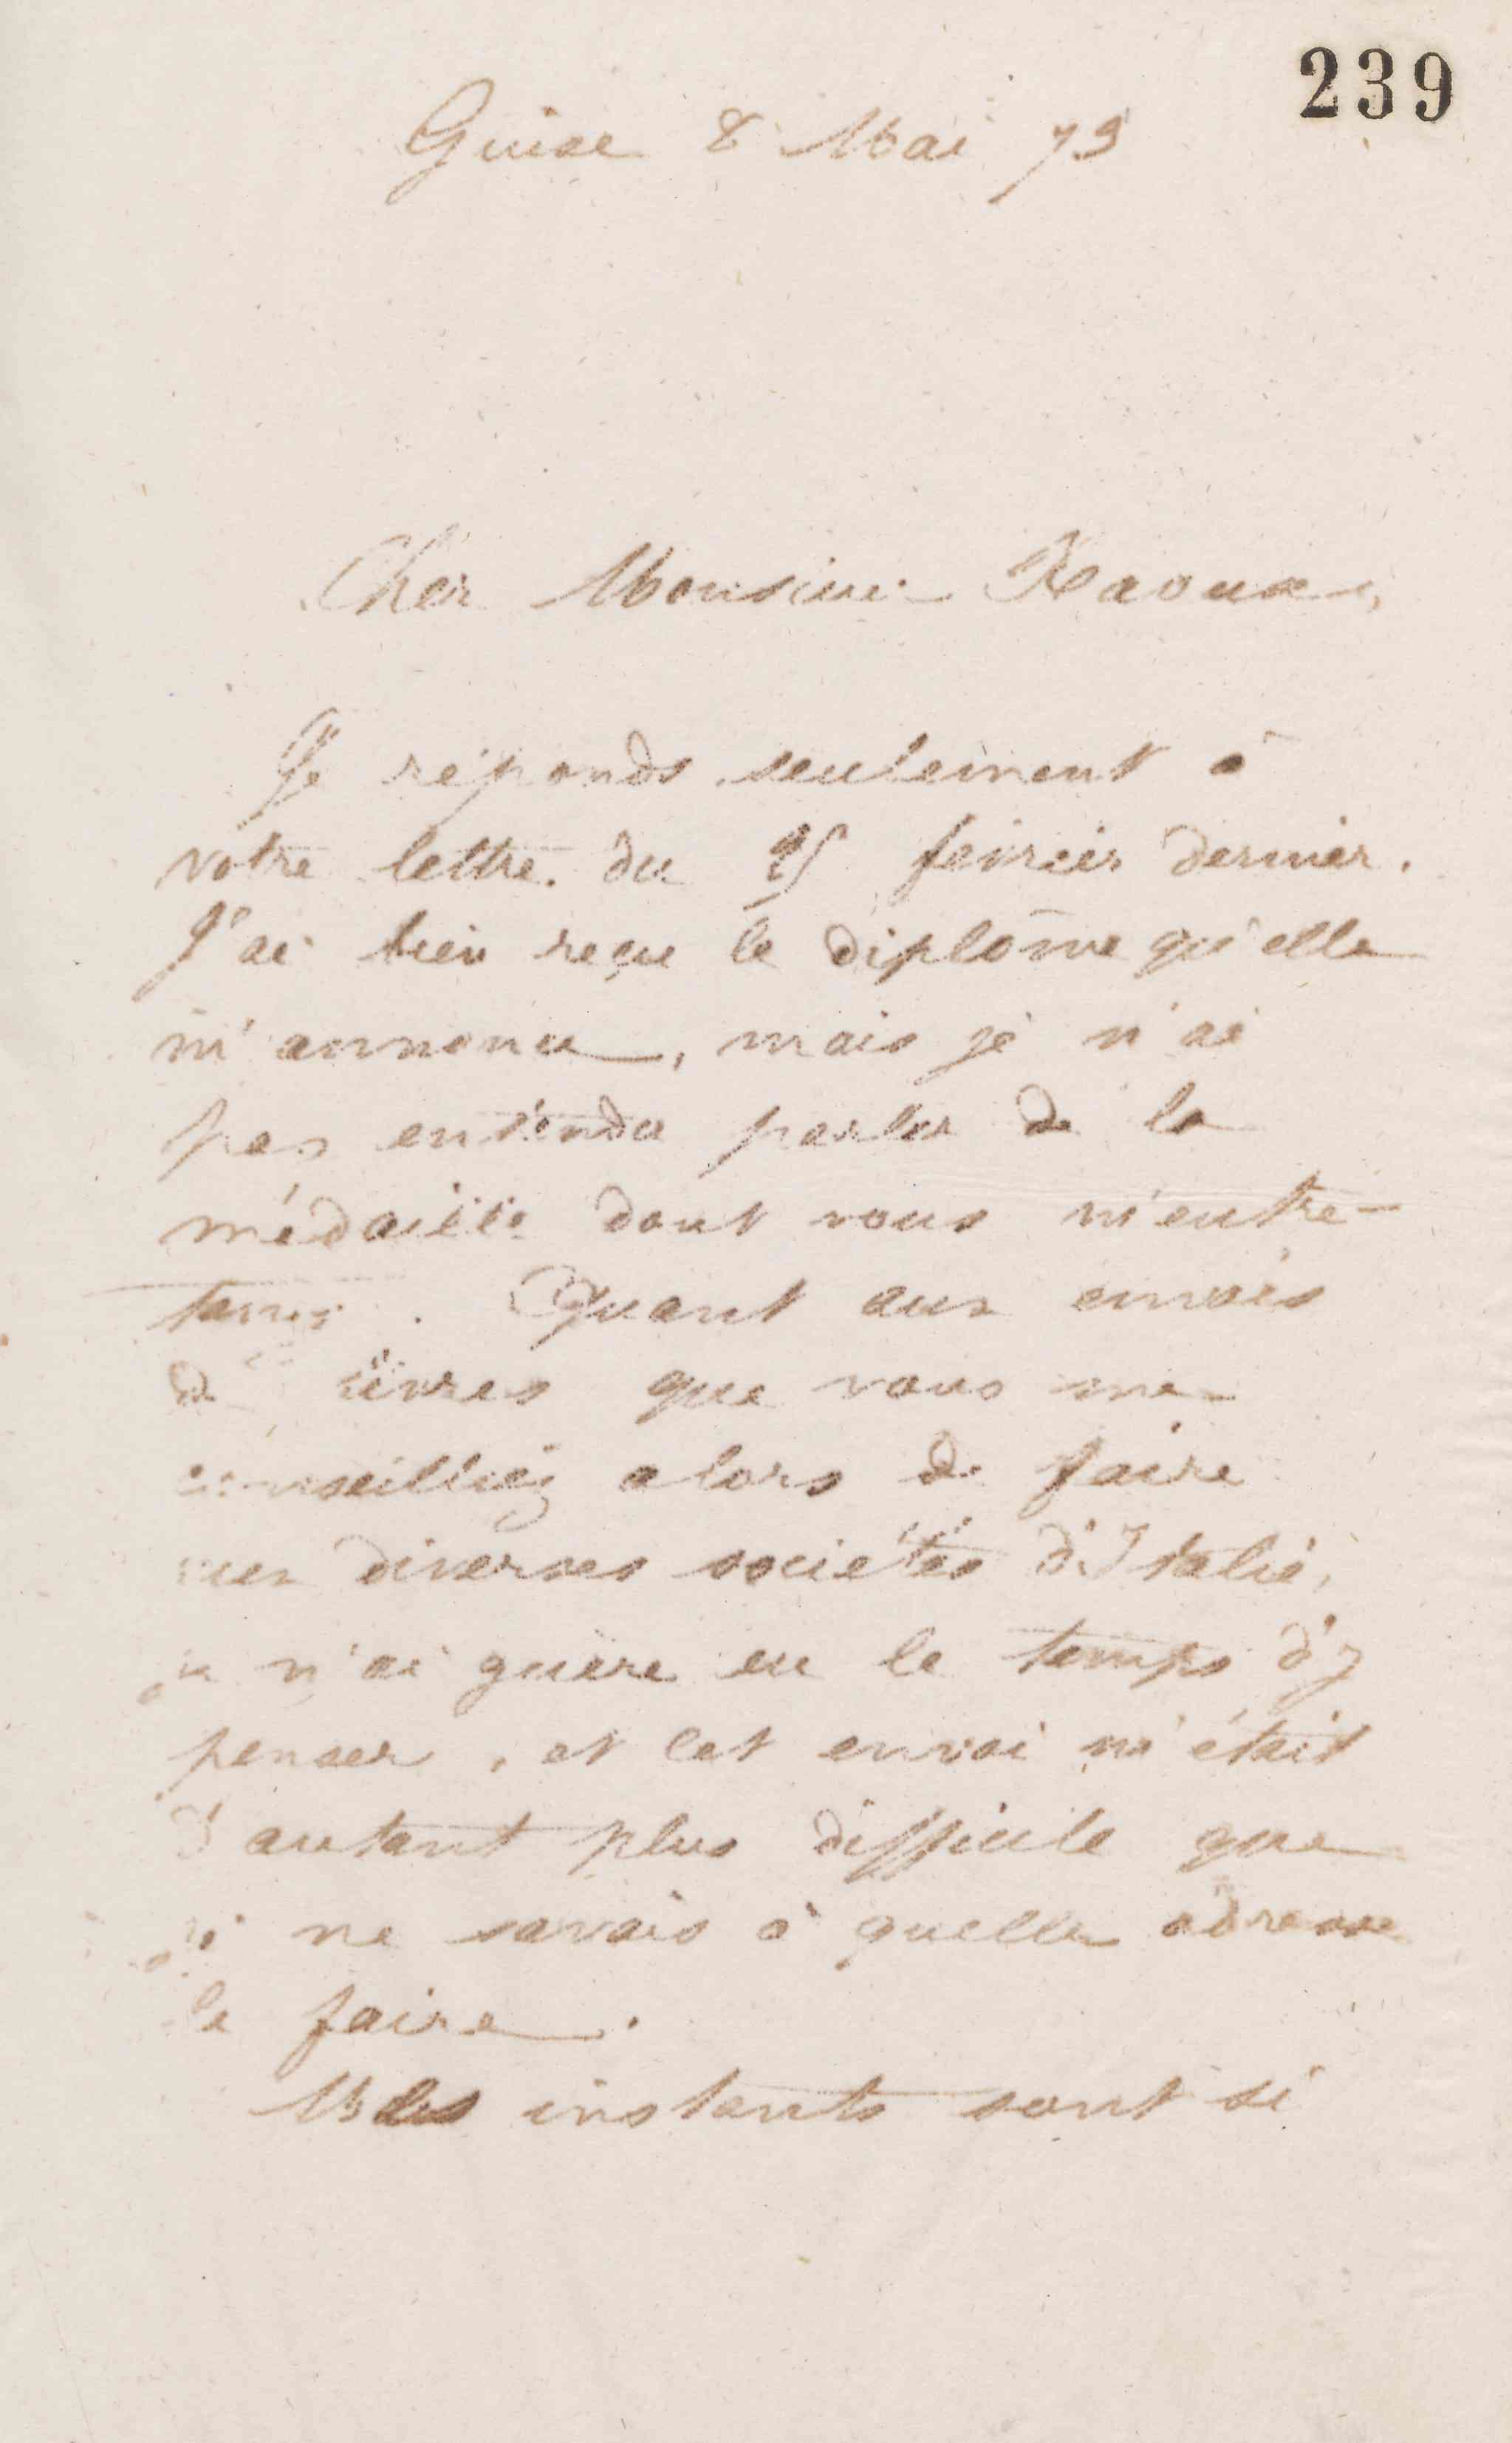 239
Guise 8 Mai 79
Cher Monsieur Raoux,
Je réponds seulement à
votre lettre du 25 février dernier.
J'ai bien reçu le diplôme qu'elle
m'annonce, mais je n'ai
pas entendu parler de la
médaille dont vous m'entre-
tenez. Quant aux envois
de livres que vous me
conseilliez alors de faire
aux diverses sociétés d'Italie,
je n'ai guère eu le temps d'y
penser, et cet envoi m'était
d'autant plus difficile que
je ne savais à quelle adresse
le faire.
Mes instants sont si